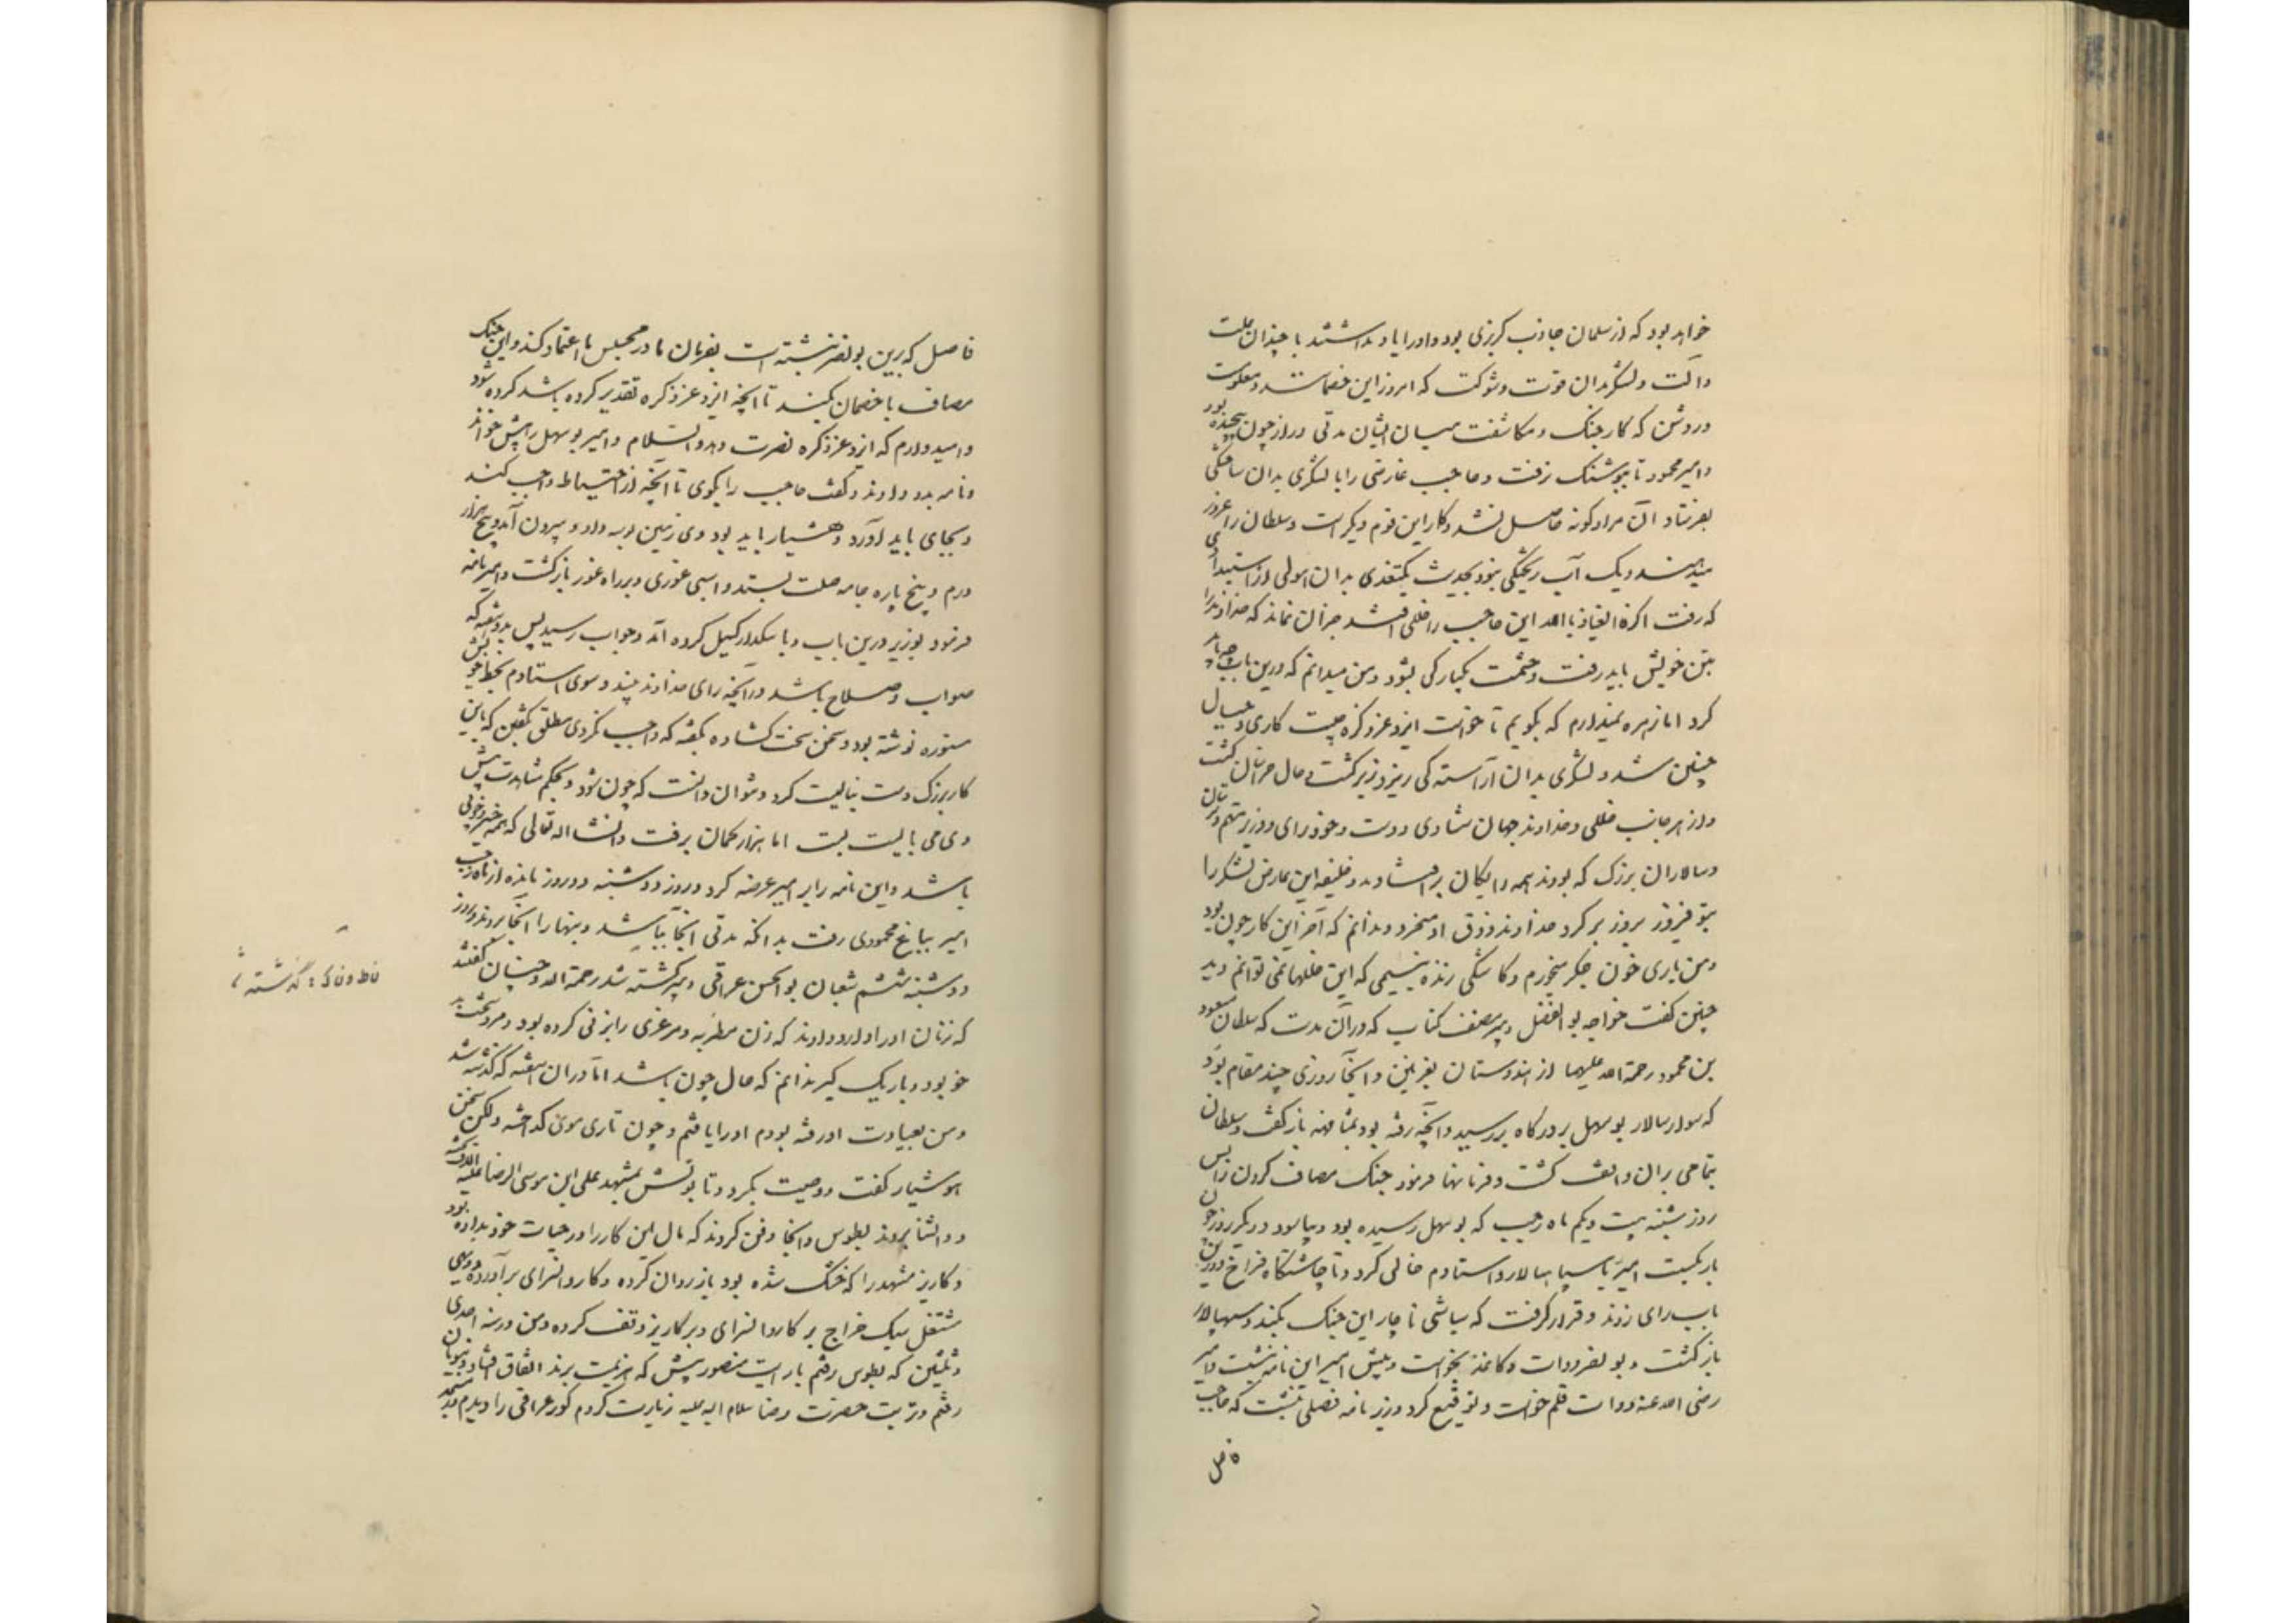 خواهد بود که ارسلمان جاذب کربزی بود و اورا یاد نداشتند با چندان علت
و آلت و لشکر بدان قوت و شوکت که امروز این خصمانند و معلومست
و روشن که کار جنک و مکاشفت میان ایشان مدتی دراز چون پیچیده بود
و امیر محمود تا پوشنک نرفت و حاجب غازی را با لشکری بدان ساختگی
بفرستاد آن مراد کونه حاصل نشد و کار این قوم دیکر است و سلطان را غرور
میدهند و یک آب ریختگی بنود بحدیث بکتغدی بدان هولی از استبدادی
که رفت اکرنه العیاذ بالله این حاجب را خللی افتد جز آن نماند که خداوند را
بتن خویش باید رفت و حشمت بیکبارکی بشود و من میدانم که درین باب چه باید
کرد اما زهره نمیدارم که بکویم تا خواست ایزد عز ذکره چیست کاری و جبال
چنین شد و لشکری بدان آراسته کی ریز و زبر کشت و حال خراسان کشت
و از هر جانب خللی و خداوند جهان شادی دوست و خود رای و وزیر متهم و ترسان
و سالاران بزرک که بودند همه رایکان بر افتادند و خلیفه این عارض لشکر را
بتوفیر و زیر و زبر کرد خداوند زرق او میخرد و ندانم که آخر این کار چون بود
و من باری خون جکر میخورم و کاشکی زنده نیستمی که این خللها نمی توانم دید
چنین کفت خواجه بو الفضل دبیر مصنف کتاب که در آن مدت که سلطان مسعود
بن محمود رحمة الله علیهما از هندوستان بغزنین و آنجا روزی چند مقام بود
که سوار سالار بو سهل بر درکاه بر رسید و آنچه رفته بود بمشافهه باز کفت و سلطان
بتمامی بر آن واقف کشت و فرمانها فرمود جنک مصاف کردن را پس
روز شنبه بیست و یکم ماه رجب که بو سهل رسیده بود و بیاسود و دیکر روز چون
بار بکسست امیر با سپاهسالار و استادم خالی کرد و تا چاشتگاه فراخ و درین
باب رای زدند و قرار کرفت که سباشی ناچار این جنک بکند و سپهسالار
باز کشت و بو نصر دوات و کاغذ بخواست و پیش امیر این نامه نبشت و امیر
رضی الله عنه دوات قلم خواست و توقیع کرد و زیر نامه فصلی نبشت که حاجب
فاضل
فاضل که برین بو نصر نبشته است بفرمان ما در مجلس ما اعتماد کند و این جنک
مصاف با خصمان بکند تا آنچه ایزد عز ذکره تقدیر کرده باشد کرده شود
و امید دارم که ایزد عز ذکره نصرت دهد و السلام و امیر بو سهل را پیش خواند
و نامه بدو دادند و کفت حاجب را بکوی تا آنچه از احتیاط واجب کند
و بجای باید آورد و هشیار باید بود وی زمین بوسه داد و بیرون آمد و پنج هزار
درم و پنج پاره جامه صلت بستد و اسبی غوری و بر راه غور باز کشت و امیر نامه
فرمود بوزیر درین باب و با سکدار کسیل کرده آمد و جواب رسید پس بدو هفته که
صواب و صلاح باشد در آنچه رای خداوند بیند و سوی استادم بخط خویش
مستوره نوشته بود و سخن سخت کشاده بکفته که واجب نکردی مطلق بکفتن که باین
کار بزرک دست ببایست کرد و نتوان دانست که چون شود و بحکم مشاهدت پیش
وی می بایست بست اما هزار حکمان برفت و انشا اله تعالی که همه خیر و خوبی
باشد و این نامه را بر امیر عرضه کرد و روز دو شنبه دو روز مانده از ماه رجب
امیر بباغ محمودی رفت بدانکه مدتی آنجا بباشد و بنهارا آنجا بردند و روز
دو شنبه ششم شعبان بو الحسن عراقی دبیر کشته شد رحمة الله و چنان کفتند
که زنان اورا دارو دادند که زن مطربه و مرغزی را بزنی کرده بود و مرد سخت بد
خو بود و باریک کیر ندانم که حال چون باشد اما در آن هفته که گذشته شد
و من بعیادت او رفته بودم اورا یافتم و چون تاری موی کداخته و لکن سخن
هوشیار کفت و وصیت بکرد و تا بوتش بمشهد علی ابن موسی الرضا علیه
و الثنا بروند بطوس و آنجا دفن کردند که مال این کار را در حیات خود بداده بود
و کاریز مشهد را که خشک شده بود باز روان کرده و کاروانسرای بر آورده و دیهی
مستغل سبک خراج بر کاروانسرای و بر کاریز وقف کرده و من در سنه احدی
و ثلثین که بطوس رفتم با رایت منصور پیش که هزیمت برند اتفاق افتاد و بنوبان
رفتم و تربت حضرت رضا سلام الله علیه زیارت کردم کور عراقی را دیدم در مسجد